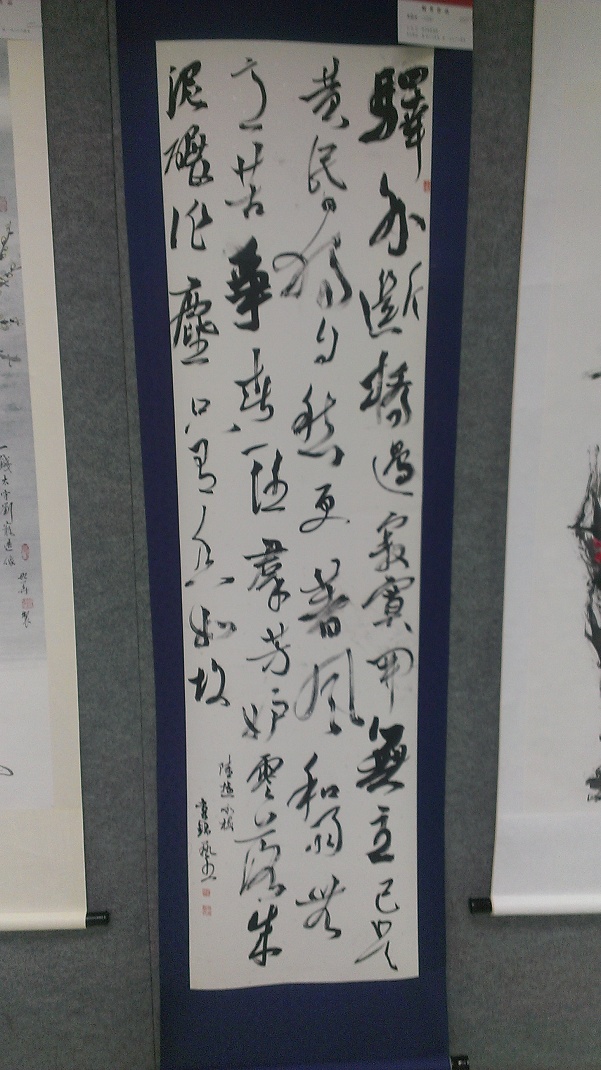 驛外斷橋邊寂寞開無主已是
黄昏獨自愁更著風和雨無
意苦爭春一任羣芳妒零落成
泥碾作塵只有香如故
陸游咏梅